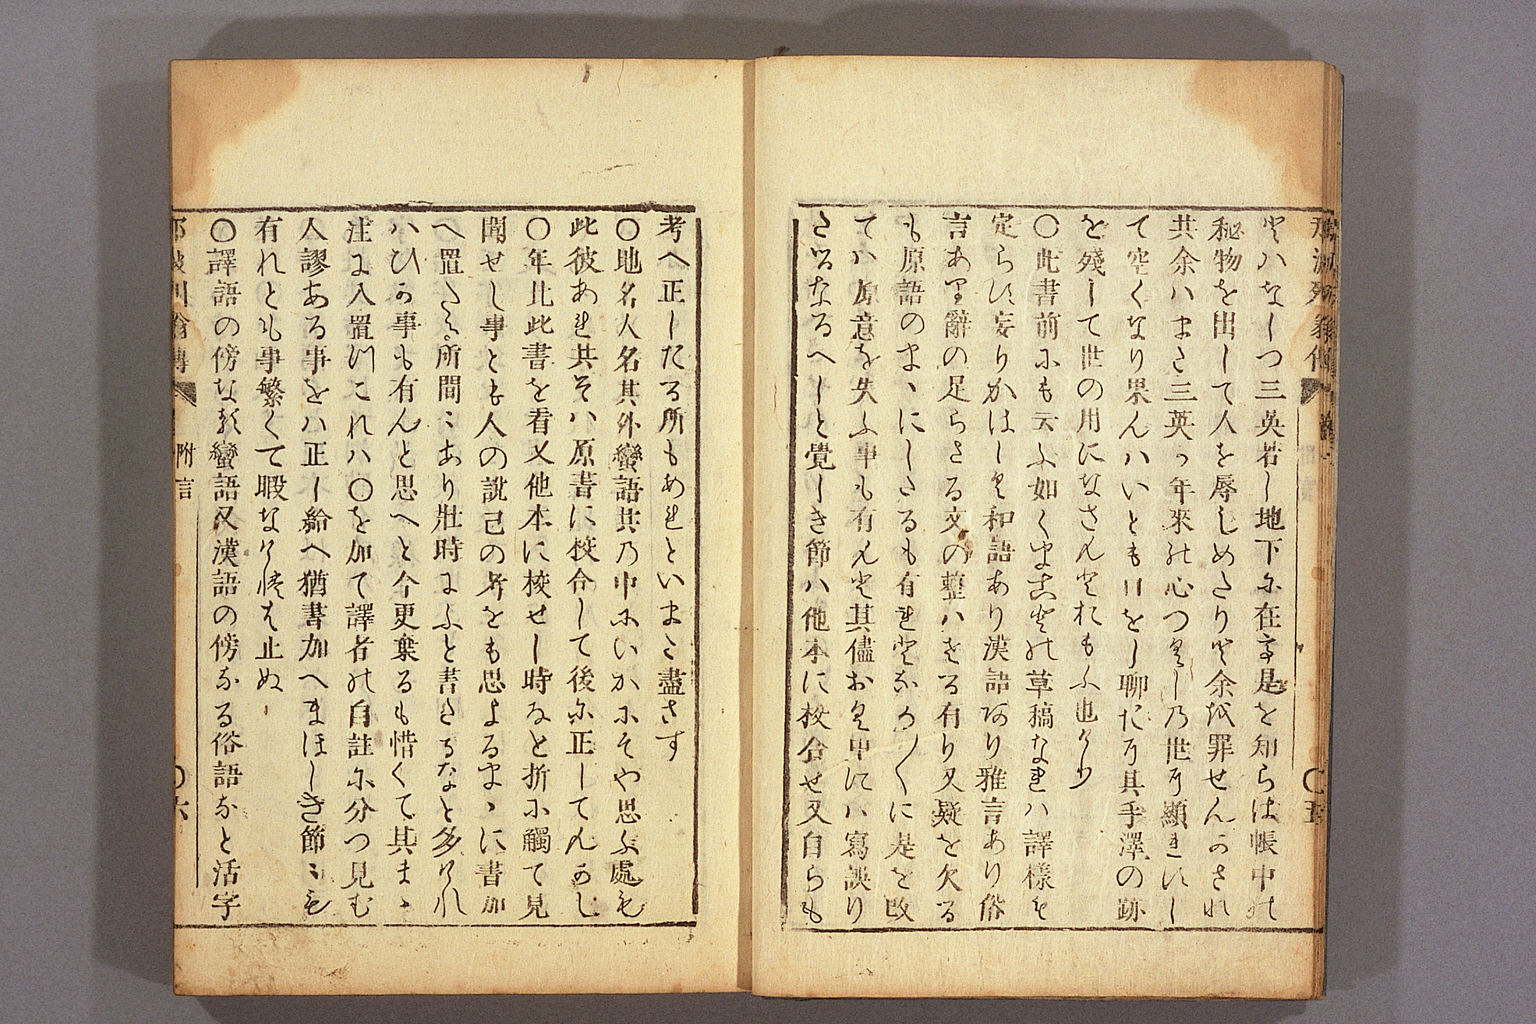 はなしつ三英若し地下に在て是を知らは帳中の
秘物を出して人を辱しめたりと余を罪せんかされ
共余ハまた三英の年來の心つくし乃世に顯れすし
て空くなり果んハいとも口をし聊にても其手澤の跡
を殘して世の用になさんとおもふ也けり
〇此書前にも云ふ如くまことの草稿なれハ譯樣も
定らす妄りかはしく和語あり漢語あり雅言あり俗
言あり辭の足らさる文の整ハさる有り又疑を欠る
も原語のまゝにしたるも有れとなか〱に是を改
てハ原意を失ふ事も有んと其儘おく中にハ寫誤り
たるなるへしと覺しき節ハ他本に校合せ又自らも
考へ正したる所もあれといまた盡さす
〇地名人名其外蠻語共乃中にいかにそや思ふ處も
此彼あれ共そハ原書に校合して後に正してんかし
〇年比此書を看又他本に校せし時なと折に觸て見
聞せし事とも人の説己の考をも思よるまゝに書加
へ置たる所間〻あり壯時にふと書たるなと多けれ
ハひか事も有んと思へと今更棄るも惜くて其まゝ
注に入置ぬこれハ〇を加て譯者の自註に分つ見む
人謬ある事をハ正し給へ猶書加へまほしき節〻も
有れとも事繁くて暇なけれは止ぬ
〇譯語の傍なる蠻語又漢語の傍なる俗語なと活字
附言
〇六